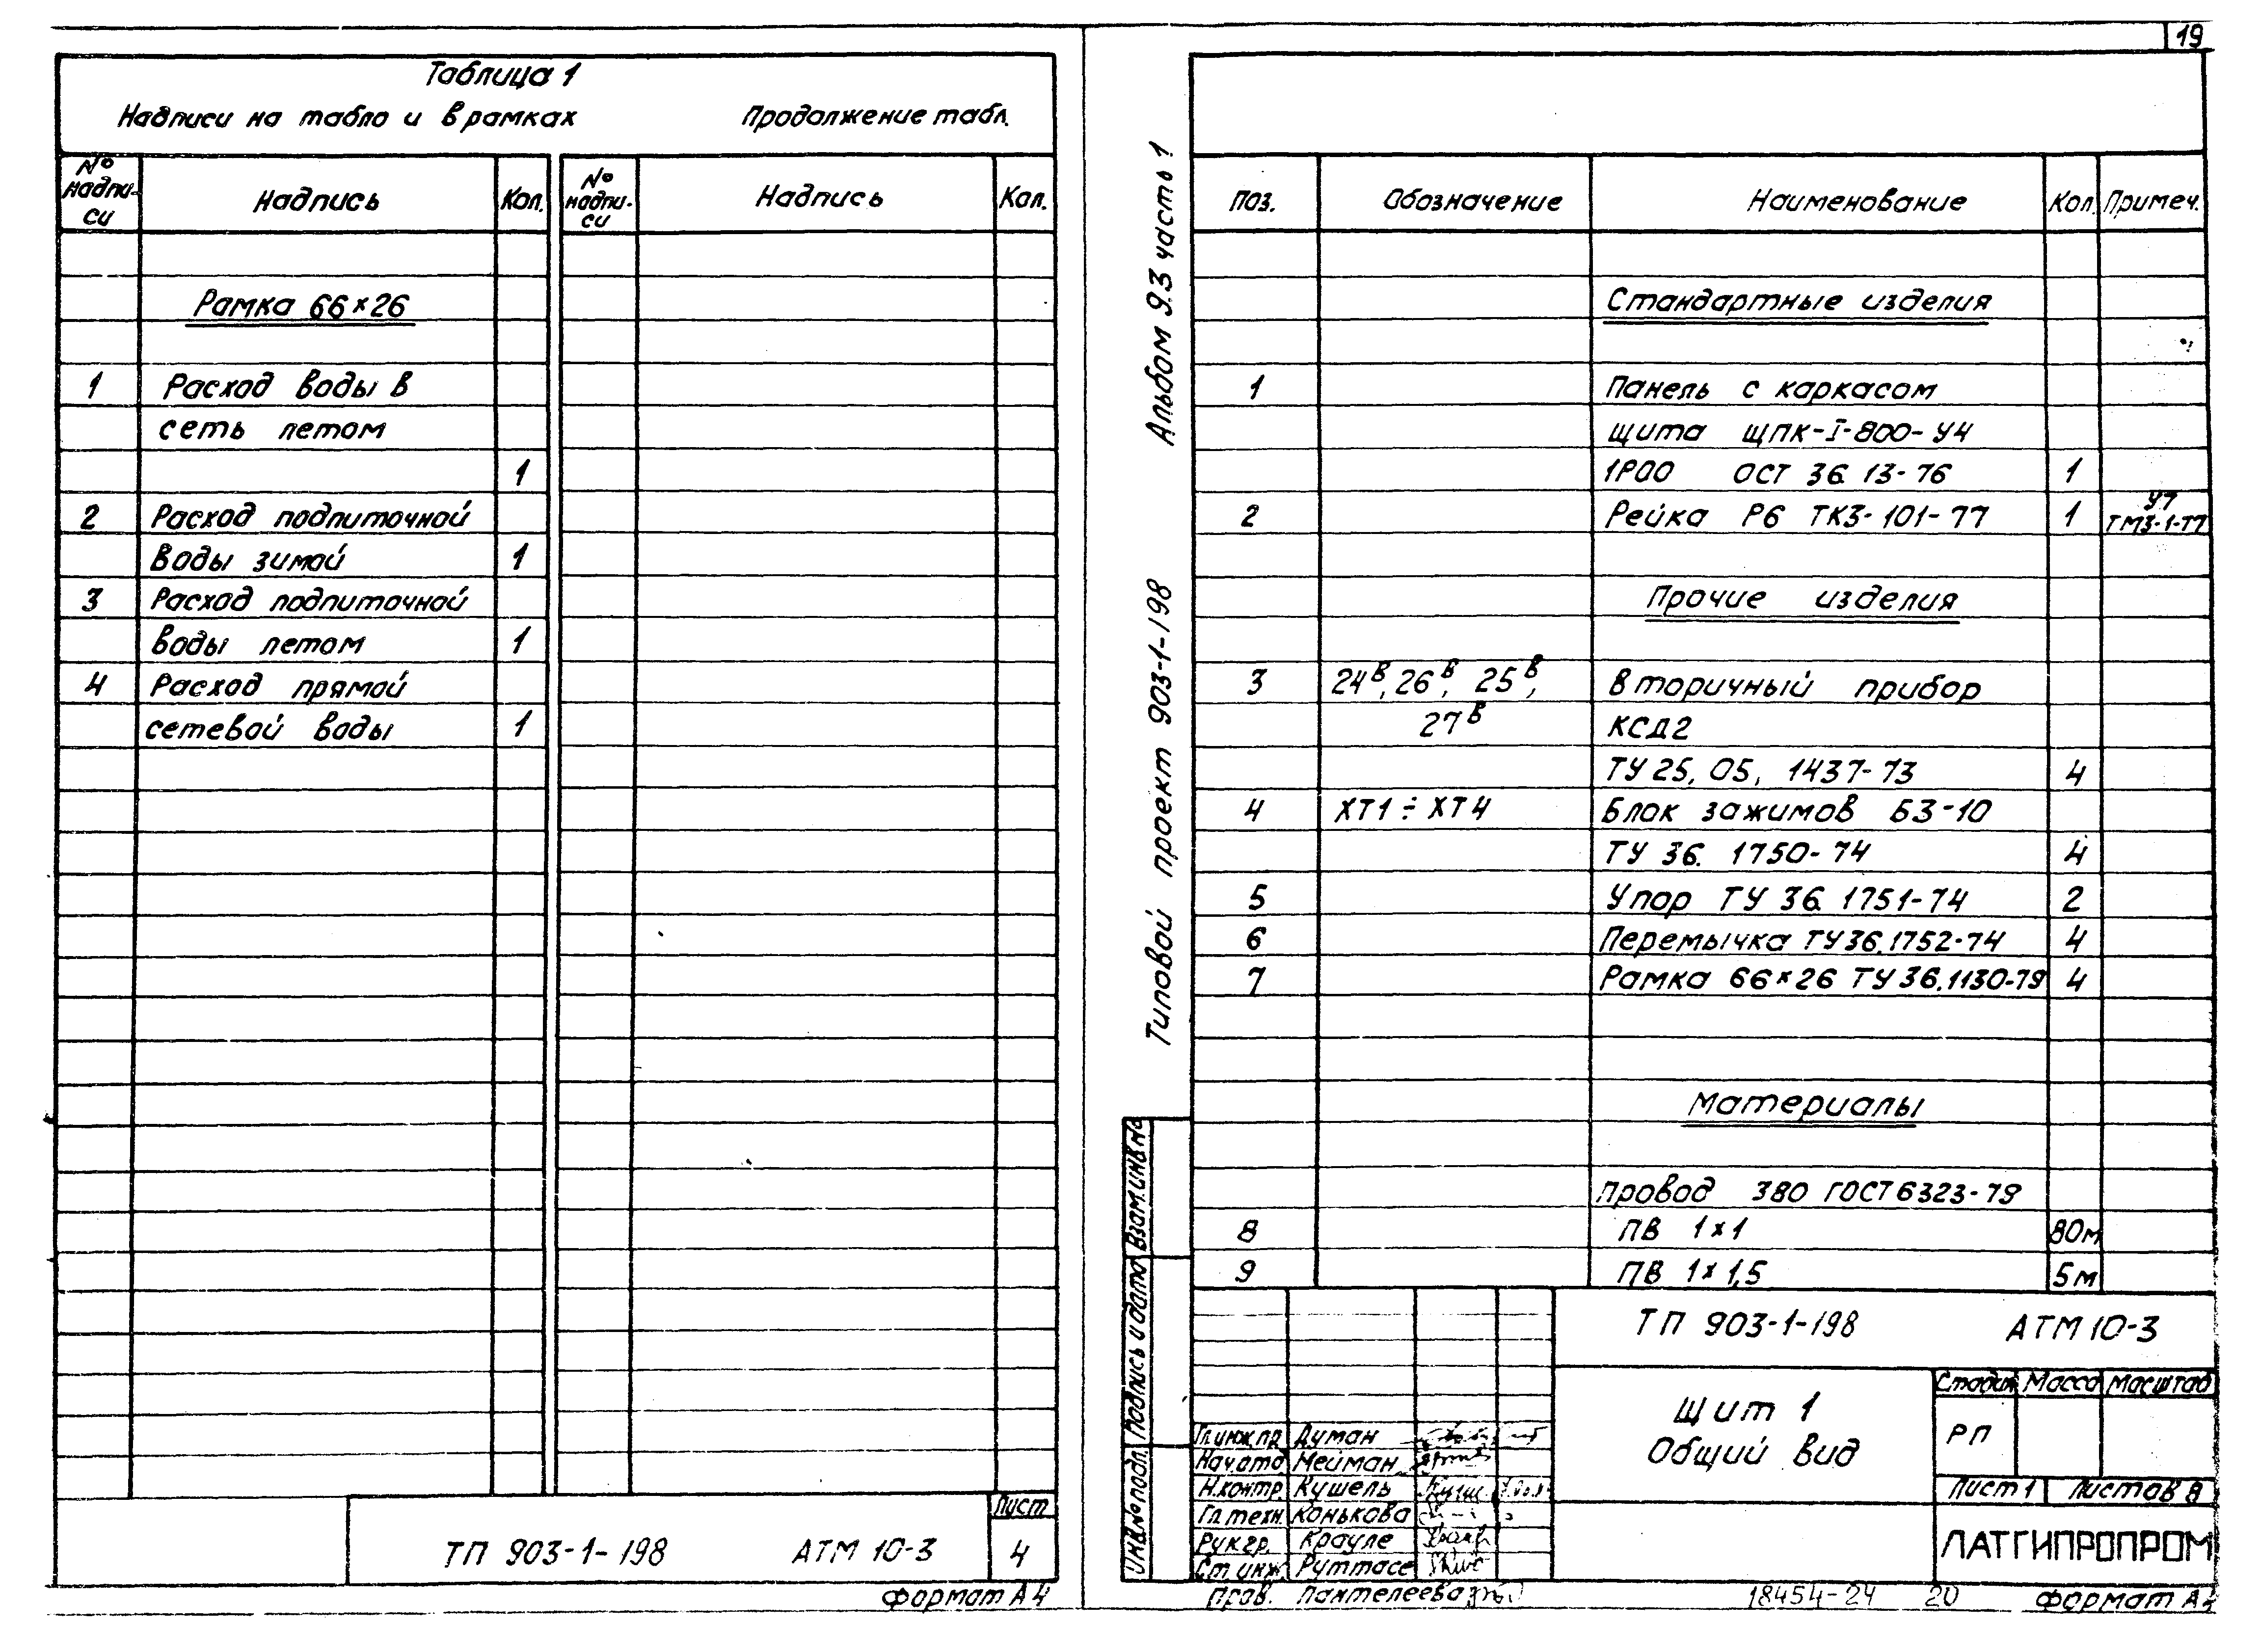 19
Таблица 1
Надписи на табло и в рамках Продолжение табл.
№ надпи-си Надпись Кол. № надпи-си Надпись Кол.
Рамка 66×26
1 Расход воды в
сеть летом
1
2 Расход подпиточной
воды зимой 1
3 Расход подпиточной
воды летом 1
4 Расход прямой
сетевой воды 1
ТП 903-1-198 АТМ 10-3
Лист
4
Формат А4
Альбом 9.3 часть 1
Типовой проект 903-1-198
Взам.инв.№
Подпись и дата
Инв.№ подл.
Поз. Обозначение Наименование Кол. Примеч.
Стандартные изделия
1 Панель с каркасом
щита ЩПК-I-800-У4
1Р00 ОСТ 36.13-76 1
2 Рейка Р6 ТК3-101-77 1 У7 ТМ3-1-77
Прочие изделия
3 24в, 26в, 25в, Вторичный прибор
27в КСД2
ТУ 25.05.1437-73 4
4 ХТ1÷ХТ4 Блок зажимов БЗ-10
ТУ 36.1750-74 4
5 Упор ТУ 36.1751-74 2
6 Перемычка ТУ36.1752-74 4
7 Рамка 66×26 ТУ 36.1130-79 4
Материалы
Провод 380 ГОСТ 6323-79
8 ПВ 1×1 80м
9 ПВ 1×1,5 5м
ТП 903-1-198 АТМ 10-3
Щит 1
Общий вид
Стадия Масса Масштаб
РП
Лист 1 Листов 8
ЛАТГИПРОПРОМ
Гл.инж.пр. Думан
Нач.отд. Мейман
Н.контр. Кушель
Гл.техн. Конькова
Рук.гр. Крауле
Ст.инж. Руттасе
Пров. Пантелеева
18454-24 20 Формат А4